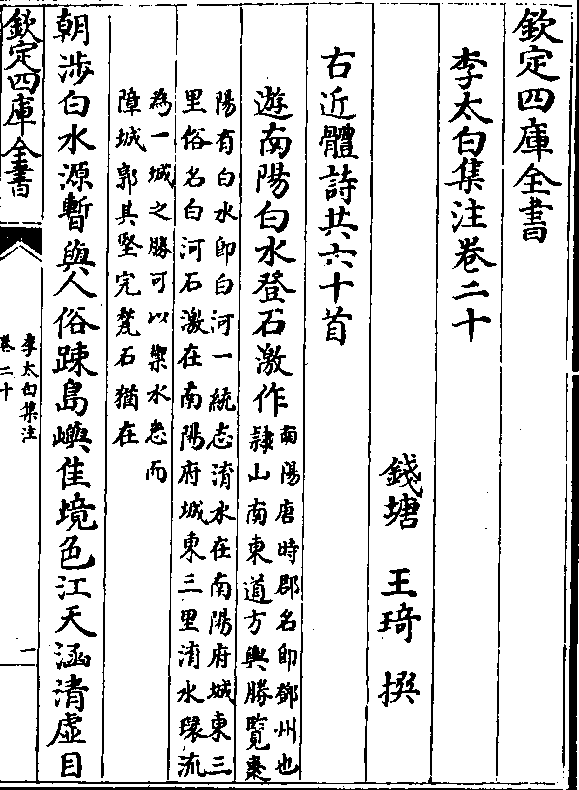 欽定四庫全書
李太白集注卷二十
錢塘 王琦 撰
右近體詩共六十首
遊南陽白水登石激作
南陽唐時郡名即鄧州也
隷山南東道方輿勝覽棗
陽有白水即白河一統志淯水在南陽府城東三
里俗名白河石激在南陽府城東三里淯水環流
為一城之勝可以禦水患而
障城郭其堅完甃石猶在
朝涉白水源暫與人俗踈島嶼佳境色江天涵清虛目
欽定四庫全書
李太白集注
卷二十
一